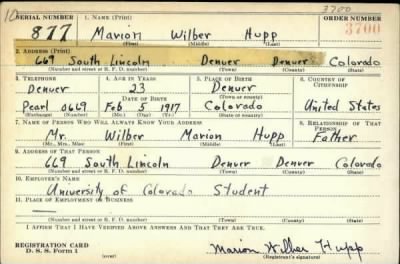 10 3700
SERIAL NUMBER 1. NAME (Print) ORDER NUMBER
877 Marion Wilber Hupp 3700
(First) (Middle) (Last)
2. ADDRESS (Print)
669 South Lincoln Denver Denver Colorado
(Number and street or R. F. D. number) (Town) (County) (State)
3. TELEPHONE 4. AGE IN YEARS 5. PLACE OF BIRTH 6. COUNTRY OF CITIZENSHIP
Denver 23 Denver
DATE OF BIRTH (Town or county)
Pearl 0669 Feb 5 1917 Colorado United States
(Exchange) (Number) (Mo.) (Day) (Yr.) (State or country)
7. NAME OF PERSON WHO WILL ALWAYS KNOW YOUR ADDRESS 8. RELATIONSHIP OF THAT PERSON
Mr. Wilber Marion Hupp Father
(Mr., Mrs., Miss) (First) (Middle) (Last)
9. ADDRESS OF THAT PERSON
669 South Lincoln Denver Denver Colorado
(Number and street or R. F. D. number) (Town) (County) (State)
10. EMPLOYER'S NAME
University of Colorado Student
11. PLACE OF EMPLOYMENT OR BUSINESS
(Number and street or R. F. D. number) (Town) (County) (State)
I AFFIRM THAT I HAVE VERIFIED ABOVE ANSWERS AND THAT THEY ARE TRUE.
REGISTRATION CARD
D. S. S. Form 1
Marion Wilber Hupp
(Registrant's signature)